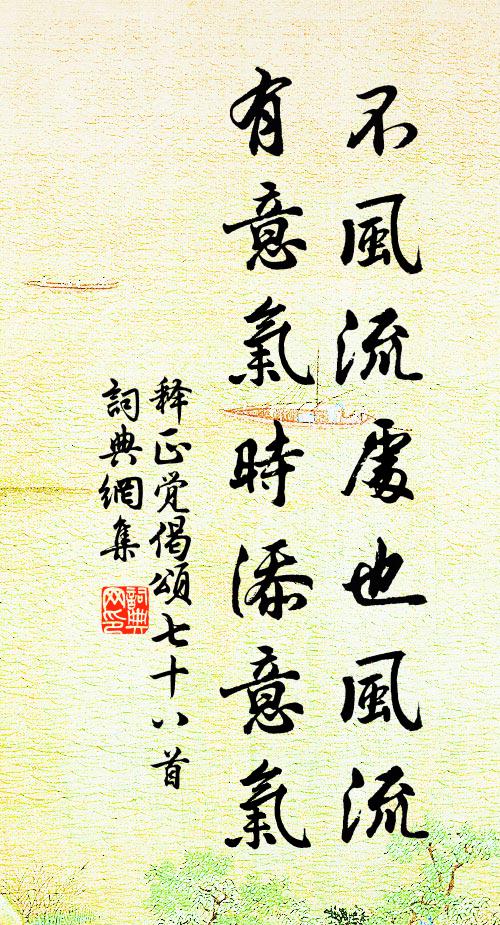 不風流處也風流
有意氣時添意氣
释正觉偈頌七十八首
詞典網集
詞典
网印